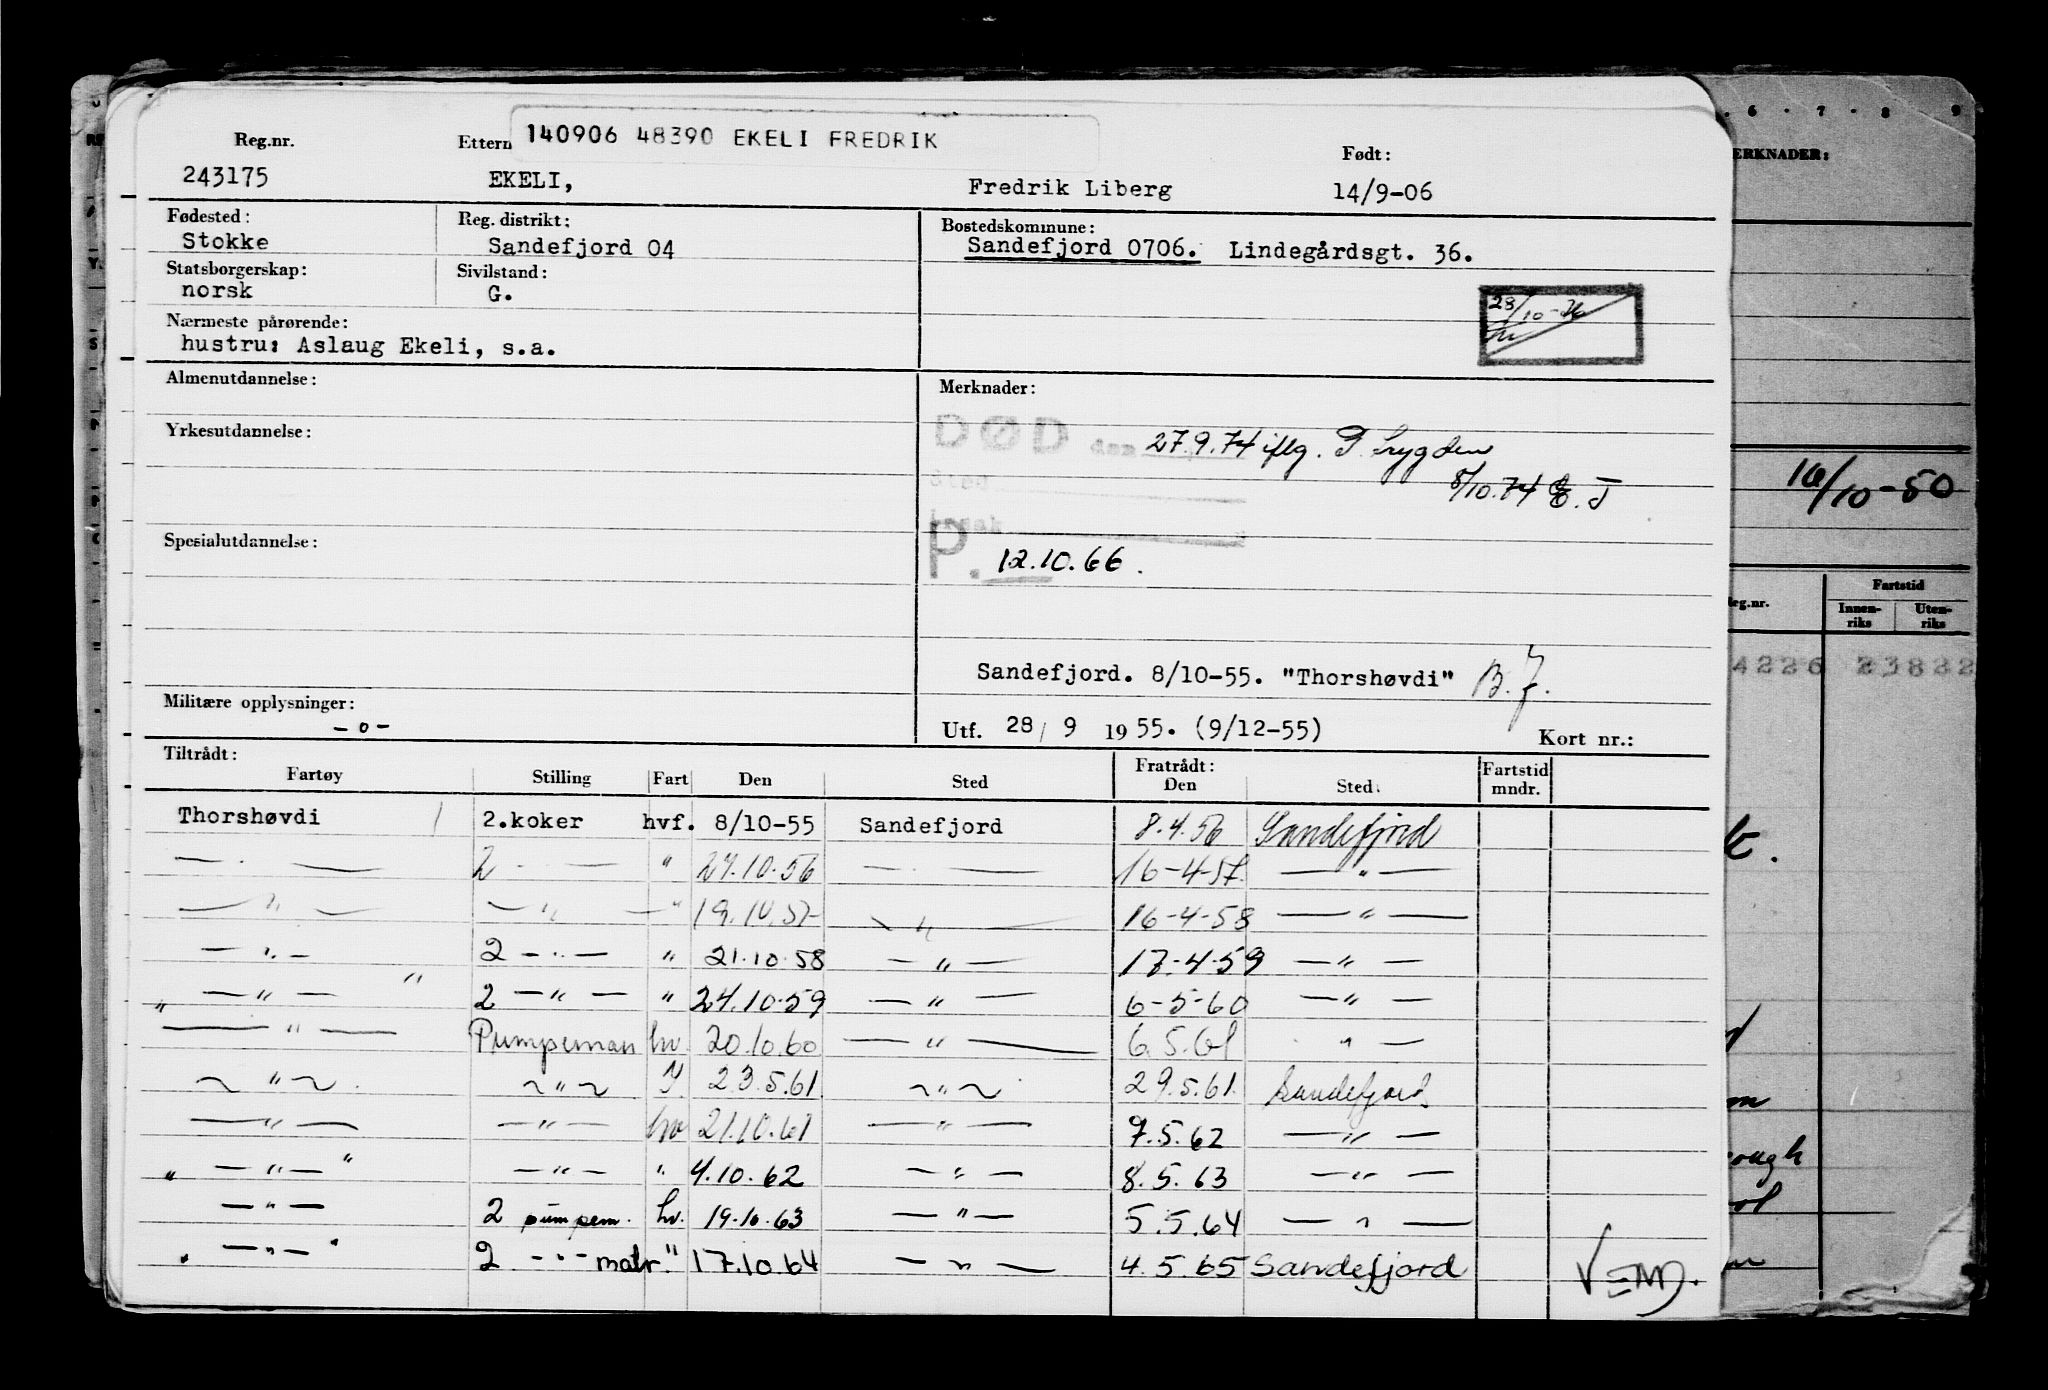 140906 48390 EKELI FREDRIK
Reg.nr. Ettern Født:
243175 EKELI, Fredrik Liberg 14/9-06
Fødested: Reg. distrikt: Bostedskommune:
Stokke Sandefjord 04 Sandefjord 0706. Lindegårdsgt. 36.
Statsborgerskap: Sivilstand:
norsk G.
Nærmeste pårørende:
hustru: Aslaug Ekeli, s.a.
Almenutdannelse: Merknader:
DØD den 27.9.74 iflg. Trygden
Yrkesutdannelse:
8/10.74 E.J
Spesialutdannelse:
P. 12.10.66.
Sandefjord. 8/10-55. "Thorshøvdi" B.J.
Militære opplysninger:
-o- Utf. 28/ 9 1955. (9/12-55) Kort nr.:
Tiltrådt: Fratrådt:
Fartøy Stilling Fart Den Sted Den Sted Fartstid mndr.
Thorshøvdi 2.koker hvf. 8/10-55 Sandefjord 8.4.56 Sandefjord
— . — 2 — . — " 27.10.56 — . — 16-4-57. — " —
— " — — " — " 19.10.57 — " — 16-4-58 — " —
— " — 2 — " — " 21.10.58 — " — 17-4-59 — " —
" — " — " 2 — " — " 24.10.59 — " — 6-5-60 — " —
— " — Pumpeman hv. 20.10.60 — " — 6.5.61 " —
~ " ~ ~ " ~ 23.5.61 ~ " ~ 29.5.61. Sandefjord.
— " — — " — hv 21.10.61 — " — 7.5.62 — " —
" — " — " — " — " 4.10.62 — " — 8.5.63 — " —
— " — 2 pumpem. hv. 19.10.63 — " — 5.5.64 — " —
" — " — " 2 - " - matr. " 17.10.64 — " — 4.5.65 Sandefjord
6 · 7 · 8 9
ERKNADER:
16/10-50
eg.nr. Fartstid
Innen-riks Uten-riks
4226 23822